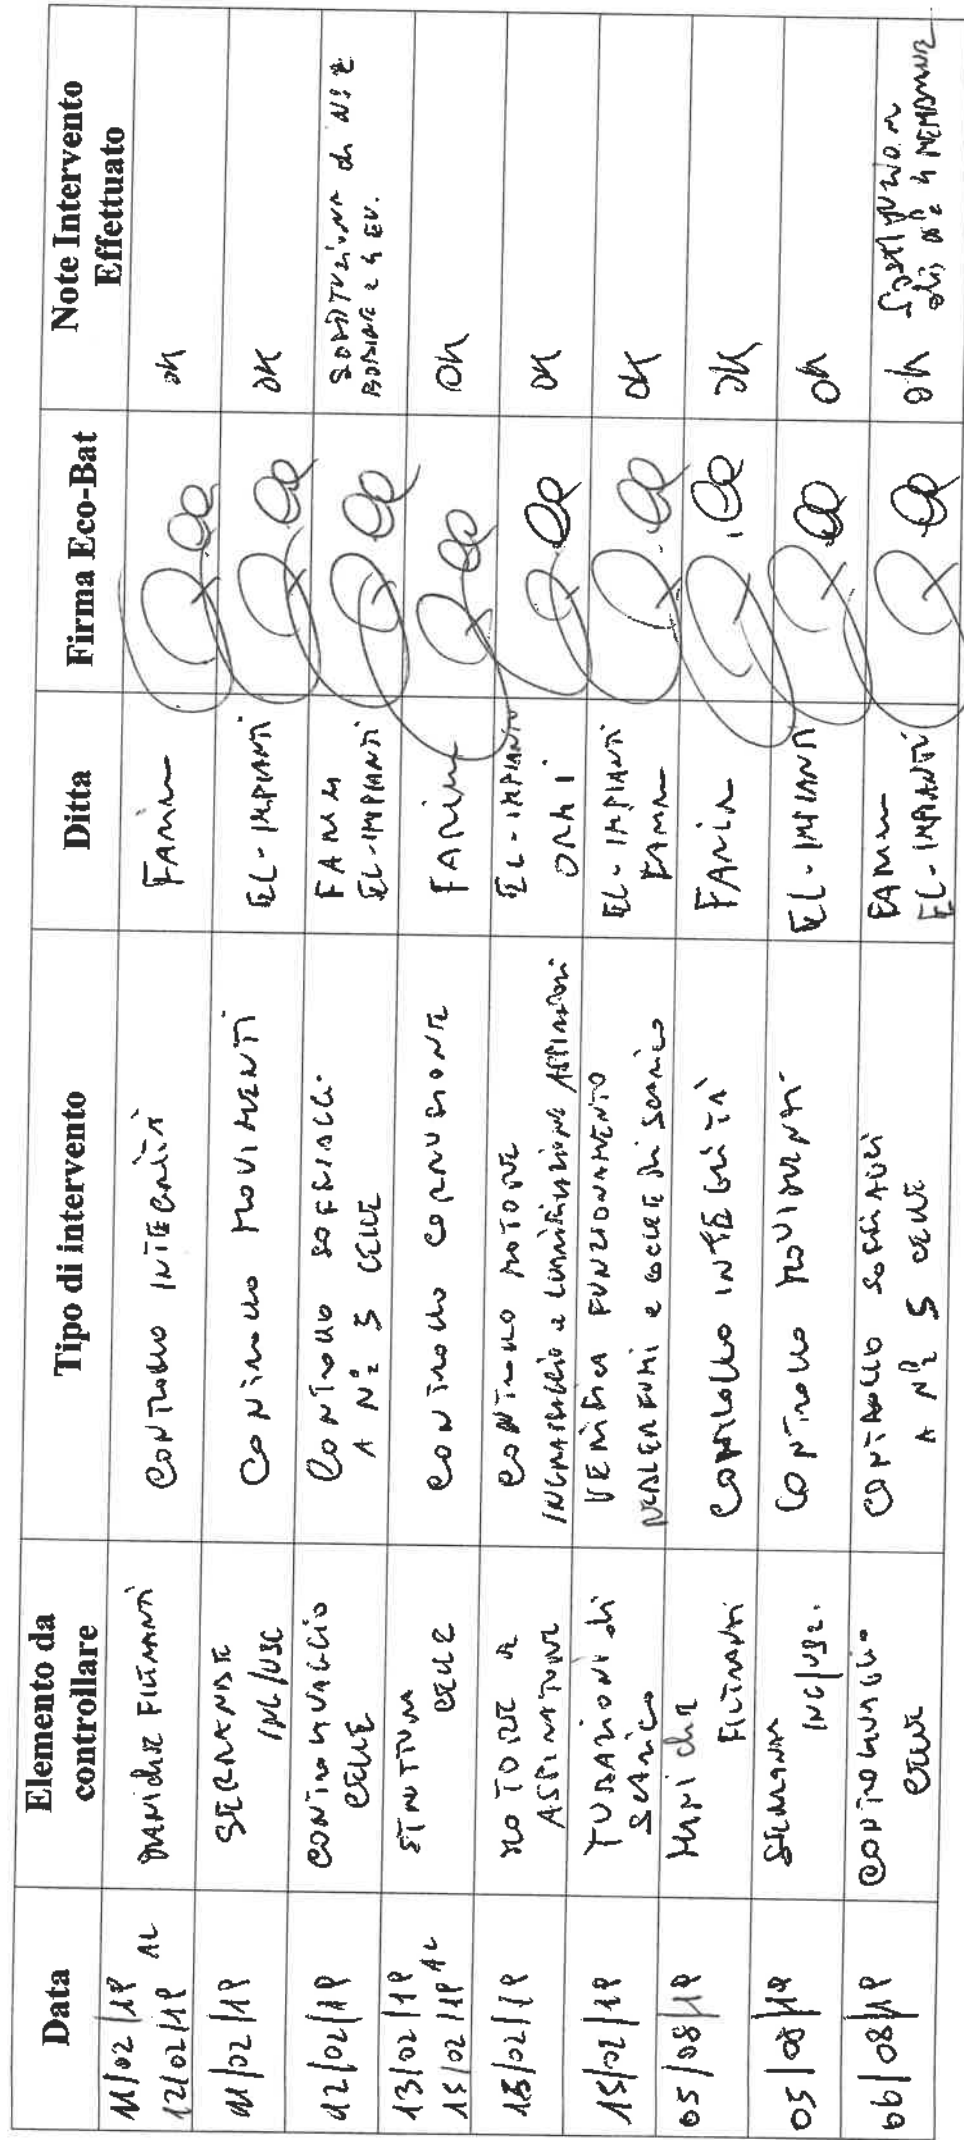 Data
Elemento da controllare
Tipo di intervento
Ditta
Firma Eco-Bat
Note Intervento Effettuato
11/02/19 AL
12/02/19
MANICHE FILTRANTI
CONTROLLO INTEGRITÀ
FAMIN
OK
11/02/19
SERRANDE
ING/USC
CONTROLLO MOVIMENTI
EL-IMPIANTI
OK
12/02/19
CONTROLAVAGGIO
CELLE
CONTROLLO SOFFIAGGI
A N° 5 CELLE
EL-IMPIANTI
SOSTITUZIONE di N° 2
BOBINE
13/02/19 AL
15/02/19
STRUTTURA
CELLE
CONTROLLO CORROSIONE
FAMIN
OK
13/02/19
MOTORE
ASPIRATORE
CONTROLLO MOTORE
INGRASSAGGIO e LUBRIFICAZIONE ASPIRATORI
EL-IMPIANTI
OK
15/02/19
TUBAZIONI di
SCARICO
VERIFICA FUNZIONAMENTO
e di SCARICO
EL-IMPIANTI
OK
05/08/19
MANICHE
FILTRANTI
CONTROLLO INTEGRITÀ
FAMIN
OK
05/08/19
SERRANDE
ING/USC.
CONTROLLO MOVIMENTI
EL-IMPIANTI
OK
06/08/19
CONTROLAVAGGIO
CELLE
CONTROLLO SOFFIAGGI
A N° 5 CELLE
EL-IMPIANTI
OK SOSTITUZIONE
di N° 4 MEMBRANE